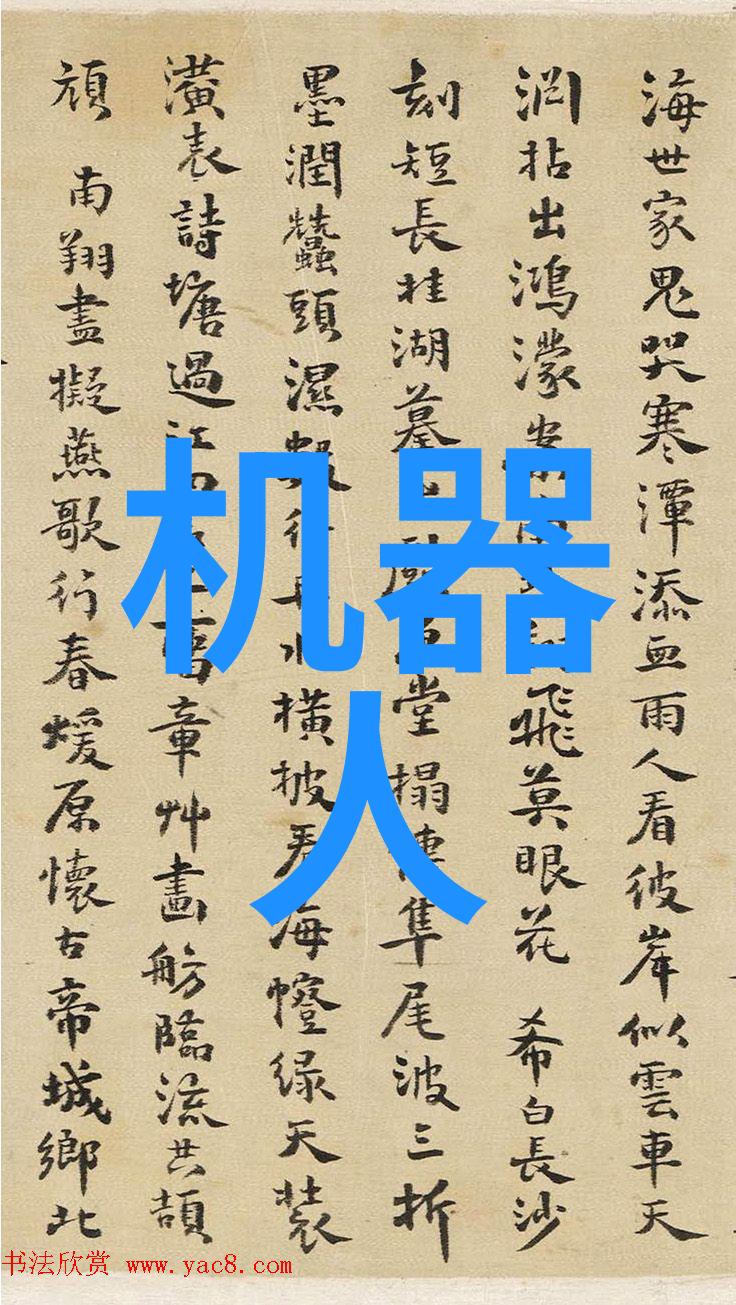 海世家鬼哭寒潭添血雨人看彼岸似雲車天
拈出鴻濛飛莫眼花 希白長沙
刻短長桂湖墓堂搨隼尾波三折
墨潤蠶頭濕行水橫披看海幢緑天裝
潢表詩塘過江章艸畫舫臨流共頡
頏 南翔盡擬燕歌行春煖原懷古帝城鄉北
机器
人
书法欣赏 www.yac8.com